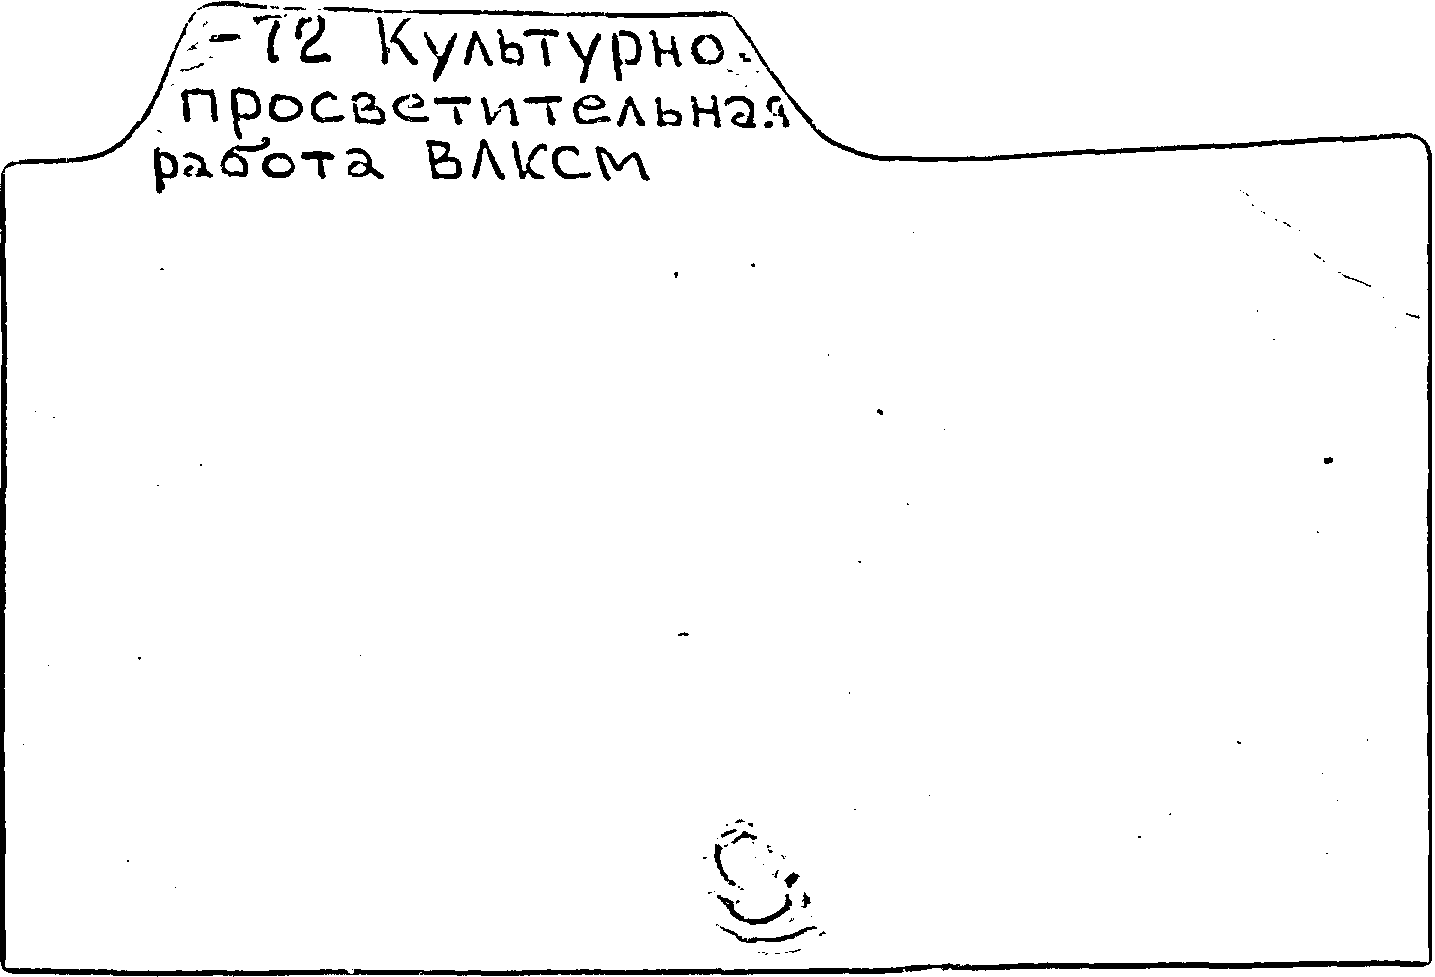 -72 Культурно-
просветительная
работа ВЛКСМ